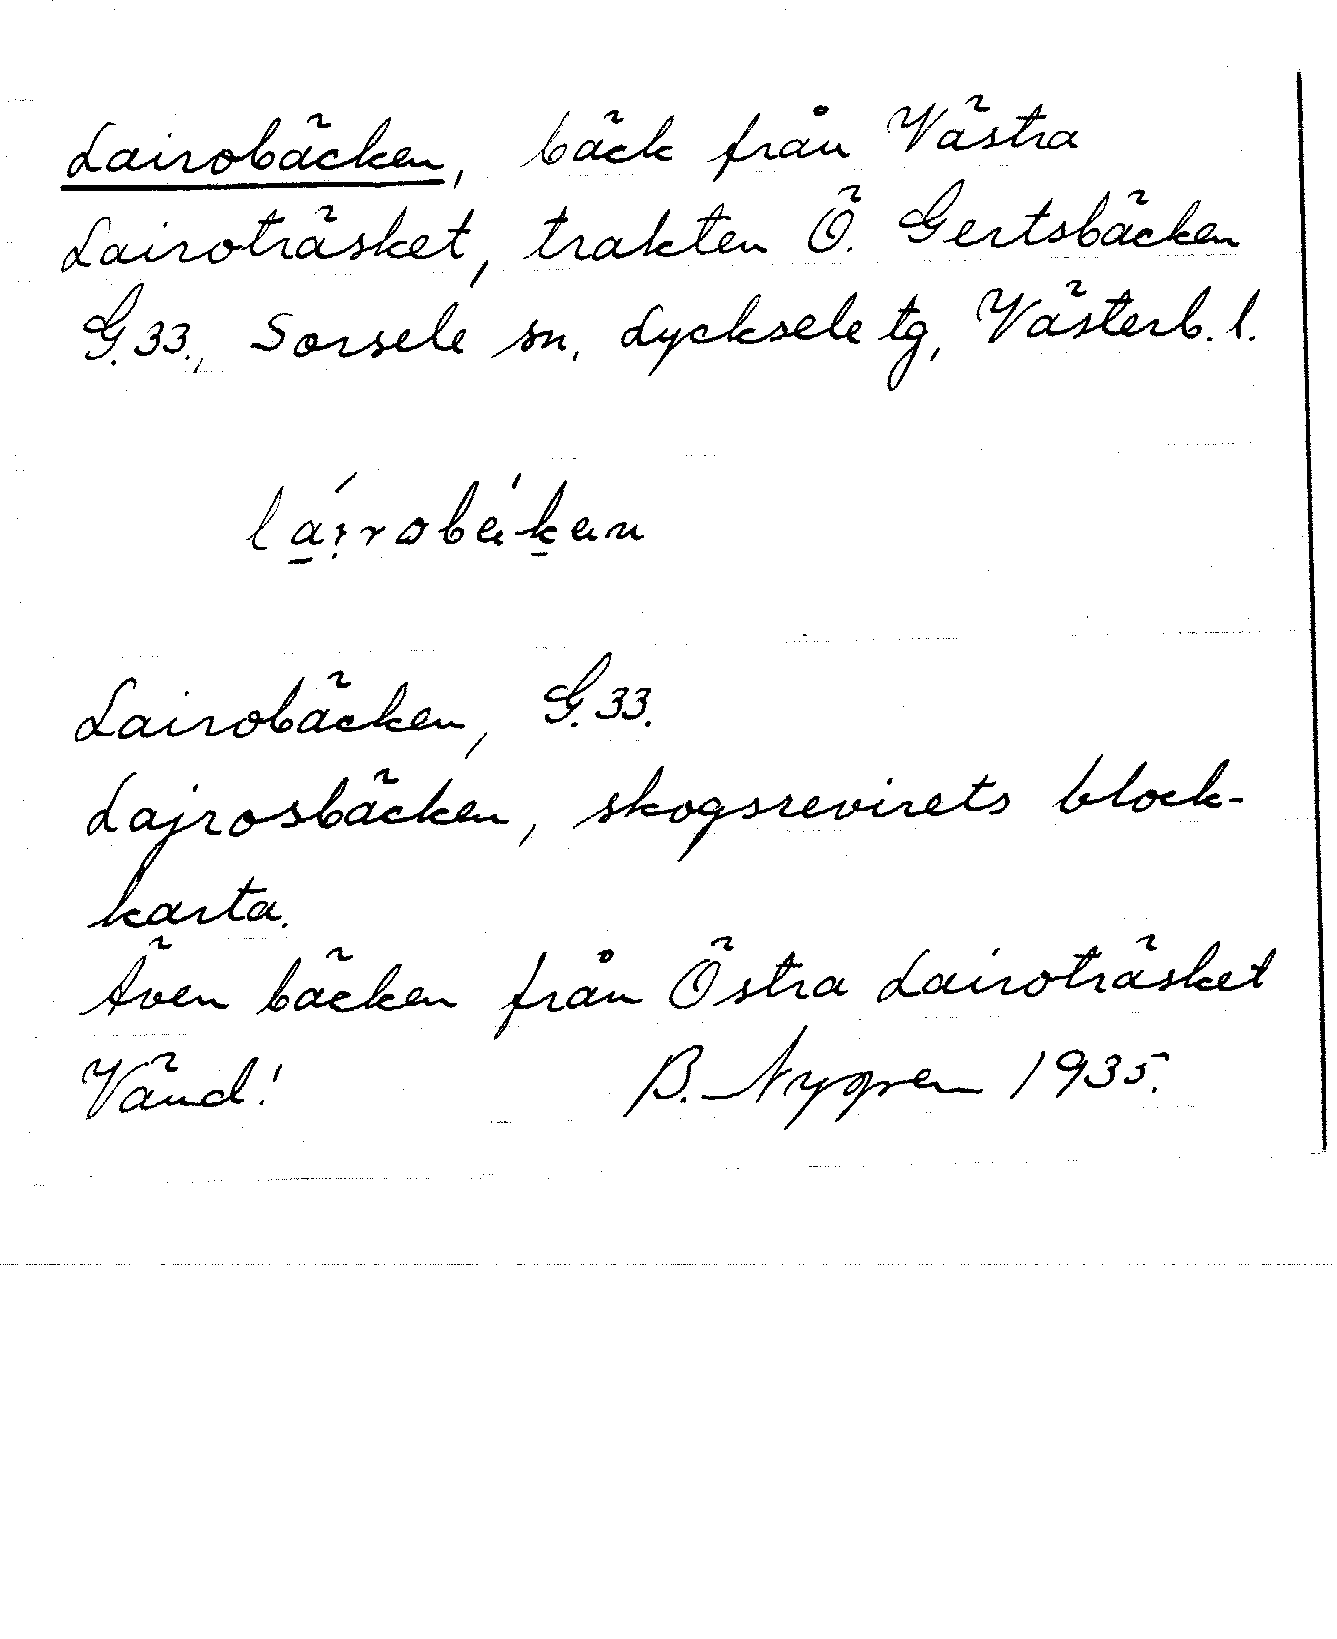 Lairobäcken, bäck från Västra
Lairoträsket, trakten Ö. Gertsbäcken
G.33., Sorsele sn, Lycksele tg, Västerb. l.
Lairobäcken, G.33.
Lajrosbäcken, skogsrevirets block-
karta.
Även bäcken från Östra Lairoträsket
Vänd! B. Nygren 1935.